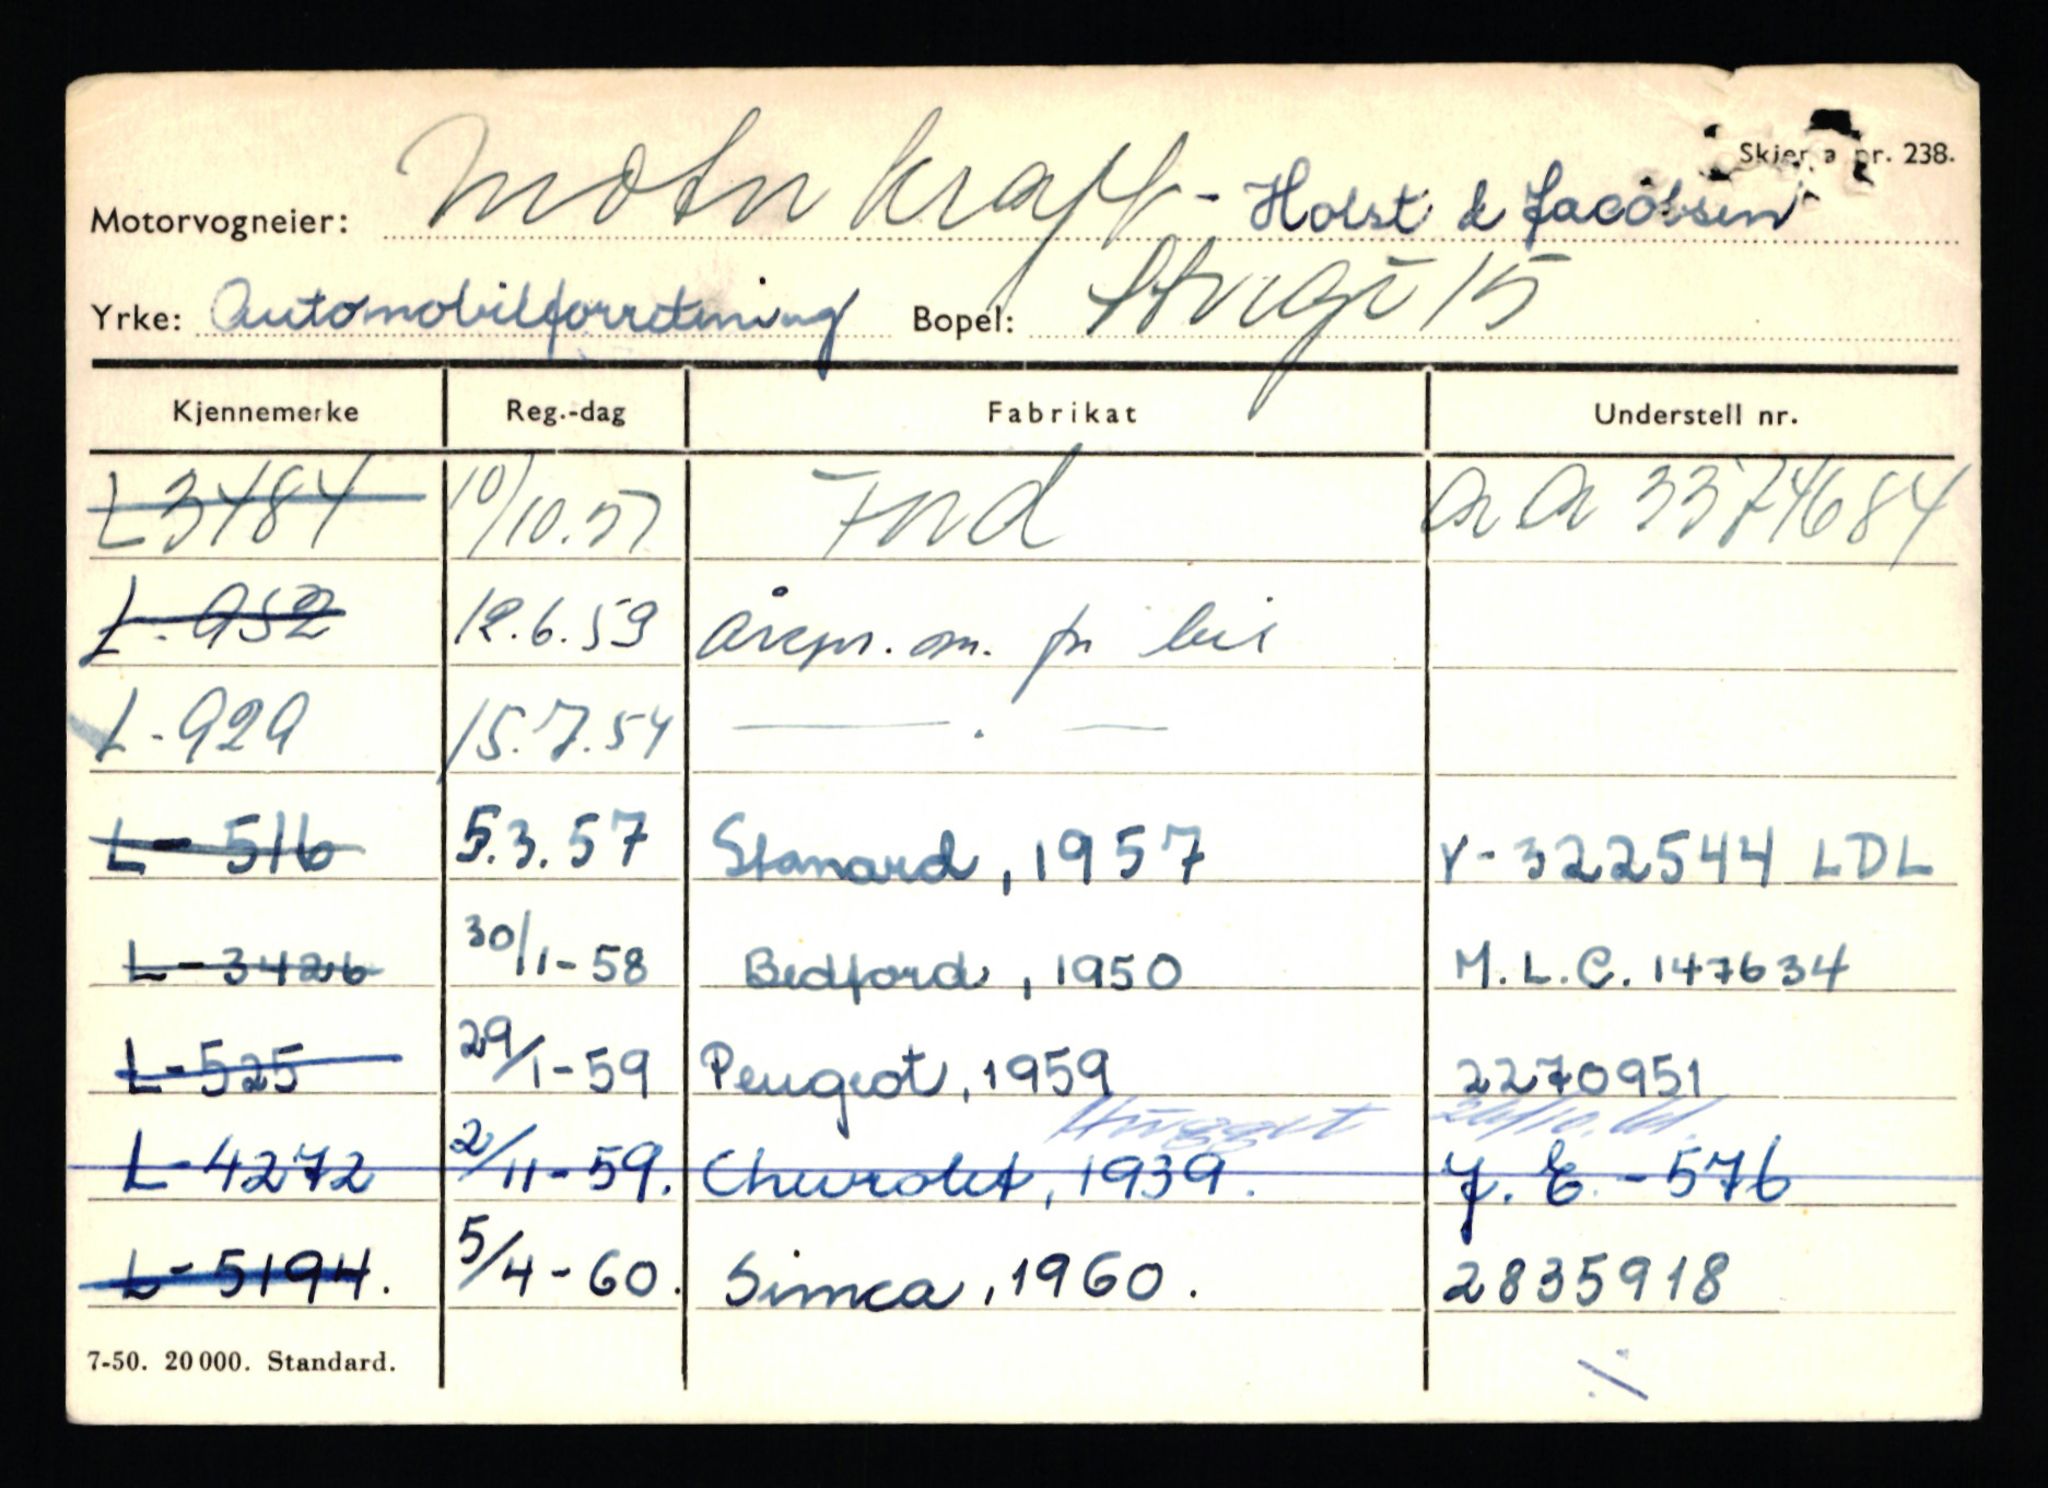 Skjema nr. 238.
Motorvogneier: Motorkraft - Holst & Jacobsen
Yrke: Automobilforretning Bopel: 15
Kjennemerke Reg.-dag Fabrikat Understell nr.
L 3484 10/10.57 Ford aa 3374684
L-952 12.6.59 årspr. om. pr bil
L-929 15.7.54 — . —
L-516 5.3.57 Stanard, 1957 V-322544 LDL
L-3426 30/1-58 Bedford, 1950 M.L.C. 147634
L-525 29/1-59 Peugeot, 1959 2270951
Hugget 26/10.61.
L-4272 2/11-59. Chevrolet, 1939. J.E.-576
L-5194. 5/4-60. Simca, 1960. 2835918
7-50. 20 000. Standard.